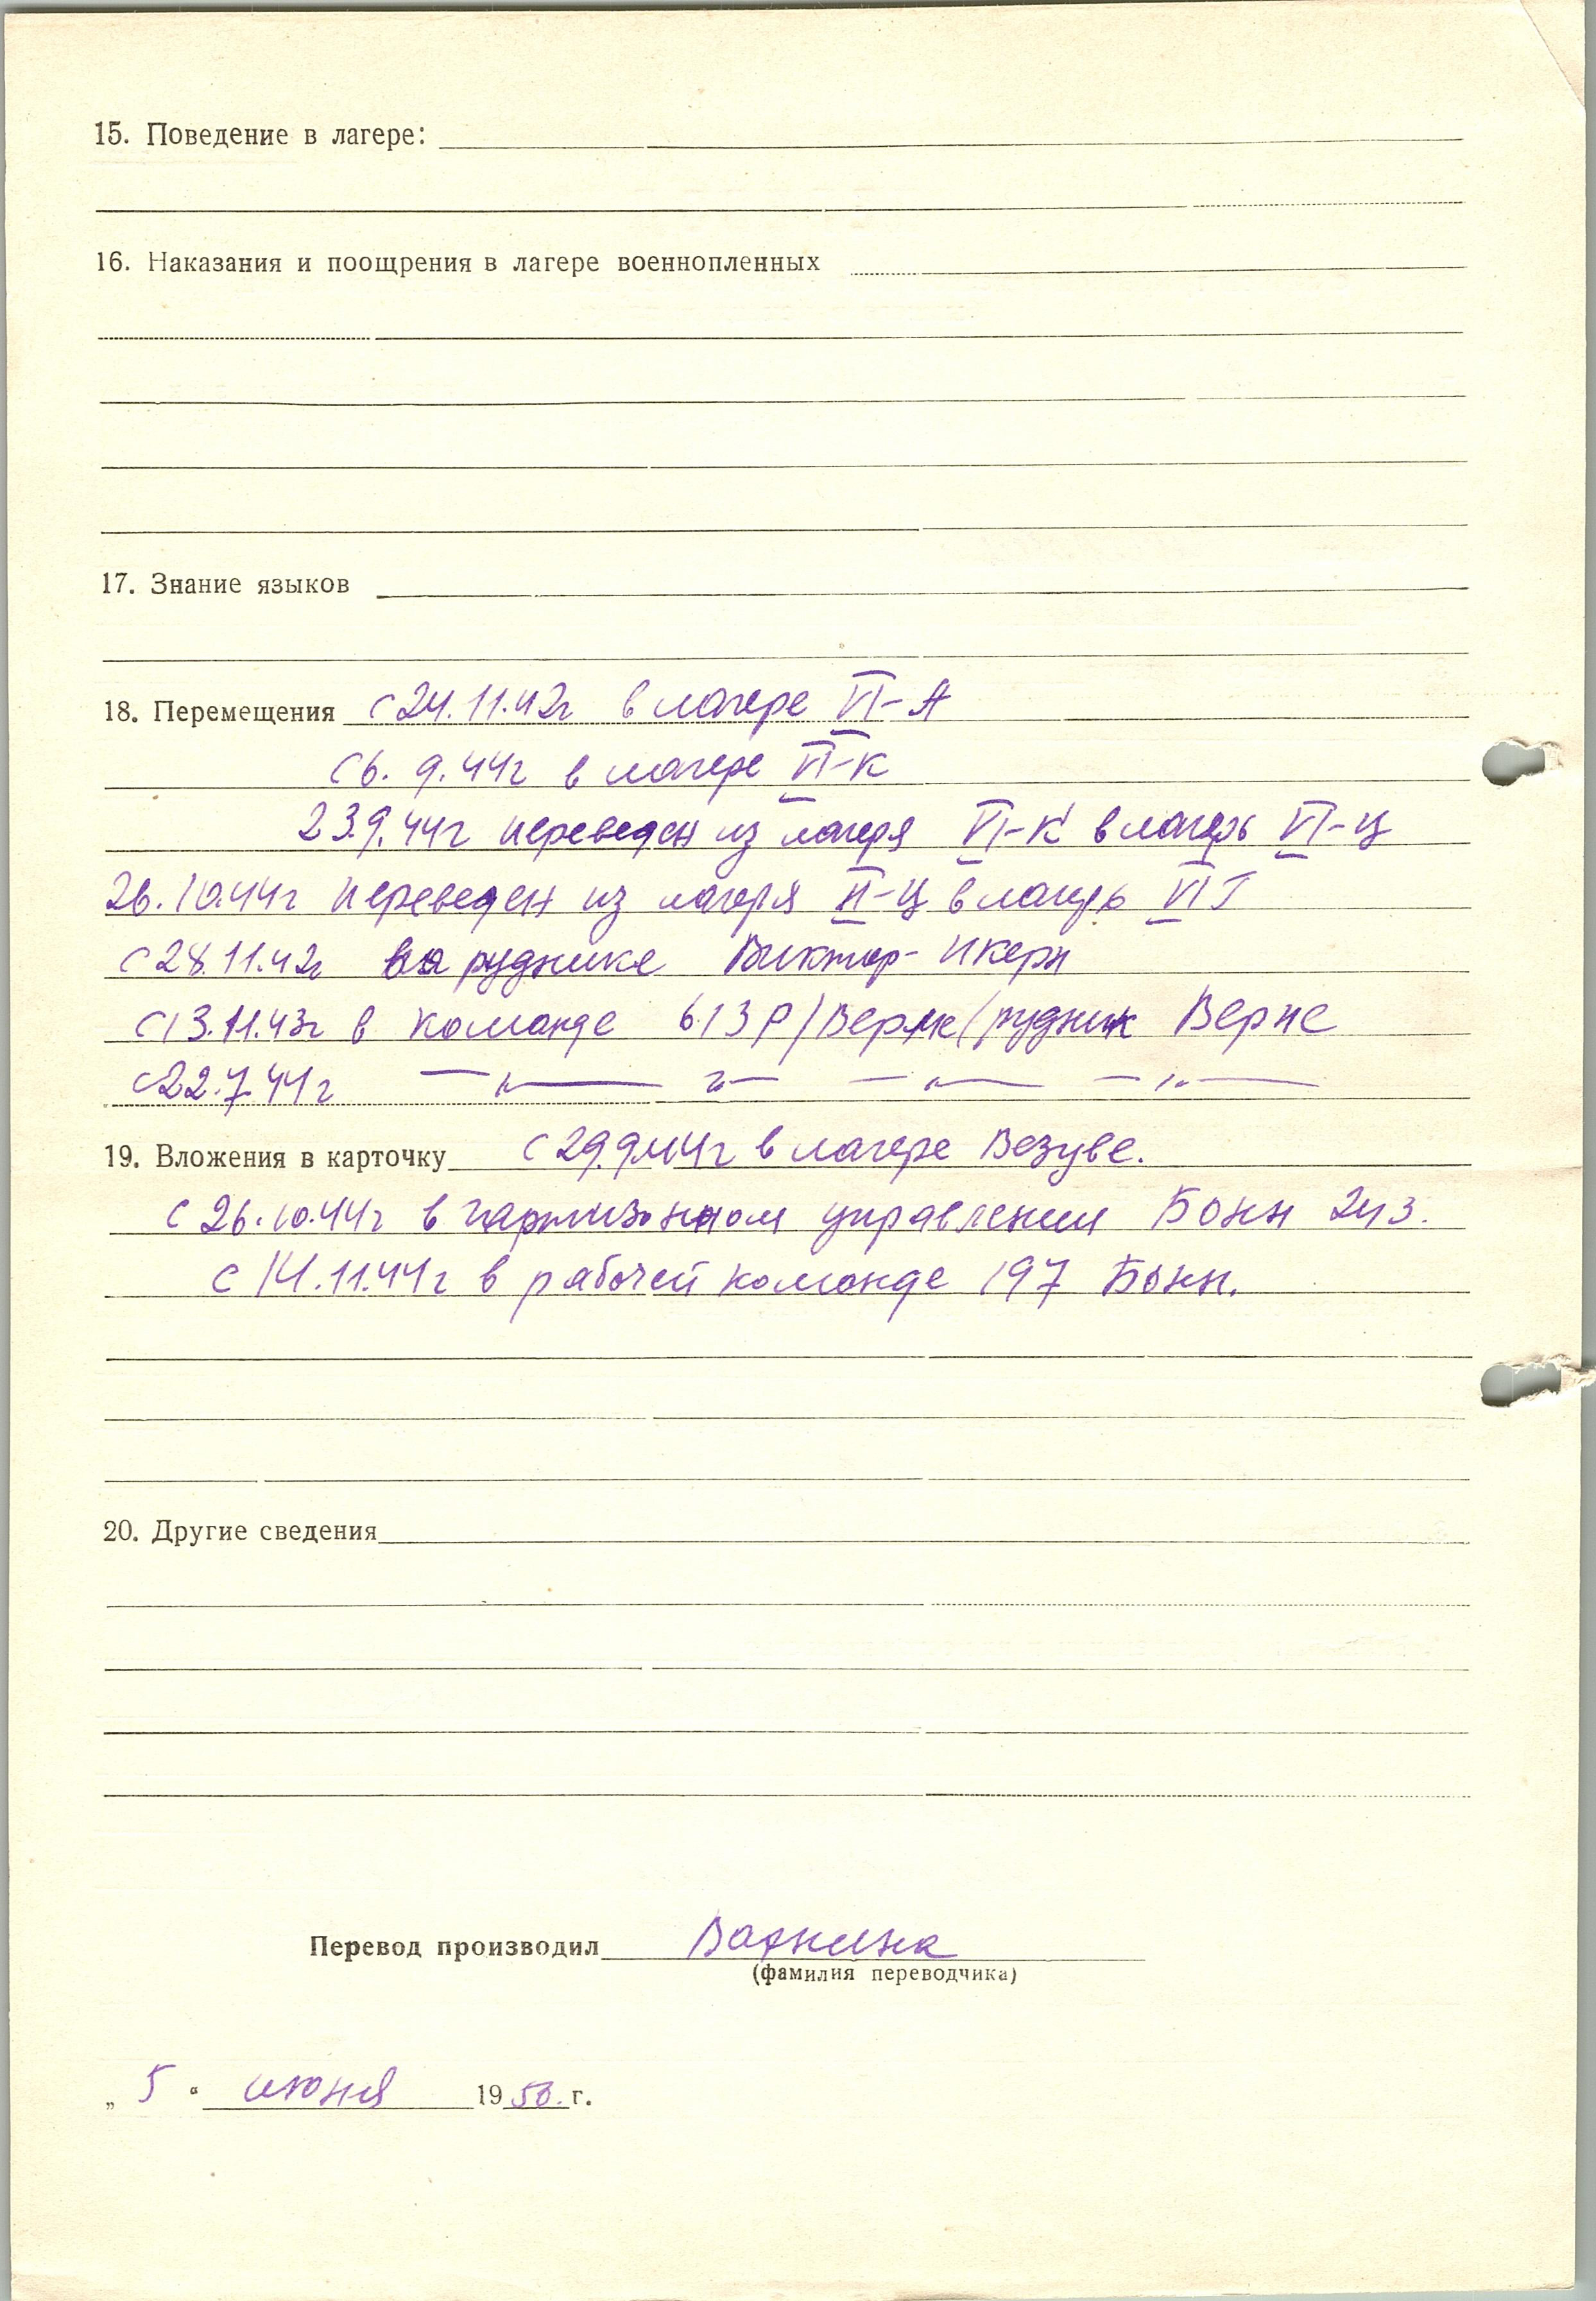 15. Поведение в лагере:
16. Наказания и поощрения в лагере военнопленных
17. Знание языков
18. Перемещения с 24.11.42г в лагере VI-А
с 6. 9.44г в лагере VI-К
23.9.44г переведен из лагеря VI-К в лагерь VI-Ц
26.10.44г переведен из лагеря VI-Ц в лагерь VI Г
с 28.11.42г на руднике Виктор-Икерн
с 13.11.43г в команде 613 Р/Верне/рудник Верне
с 22.7.44г —„— —„— —„— —„—
19. Вложения в карточку с 29.9.44г в лагере Везуве.
с 26.10.44г в гарнизонном управлении Бонн
с 14.11.44г в рабочей команде 197 Бонн.
20. Другие сведения
Перевод производил
(фамилия переводчика)
„ 5 “ июня 1950. г.